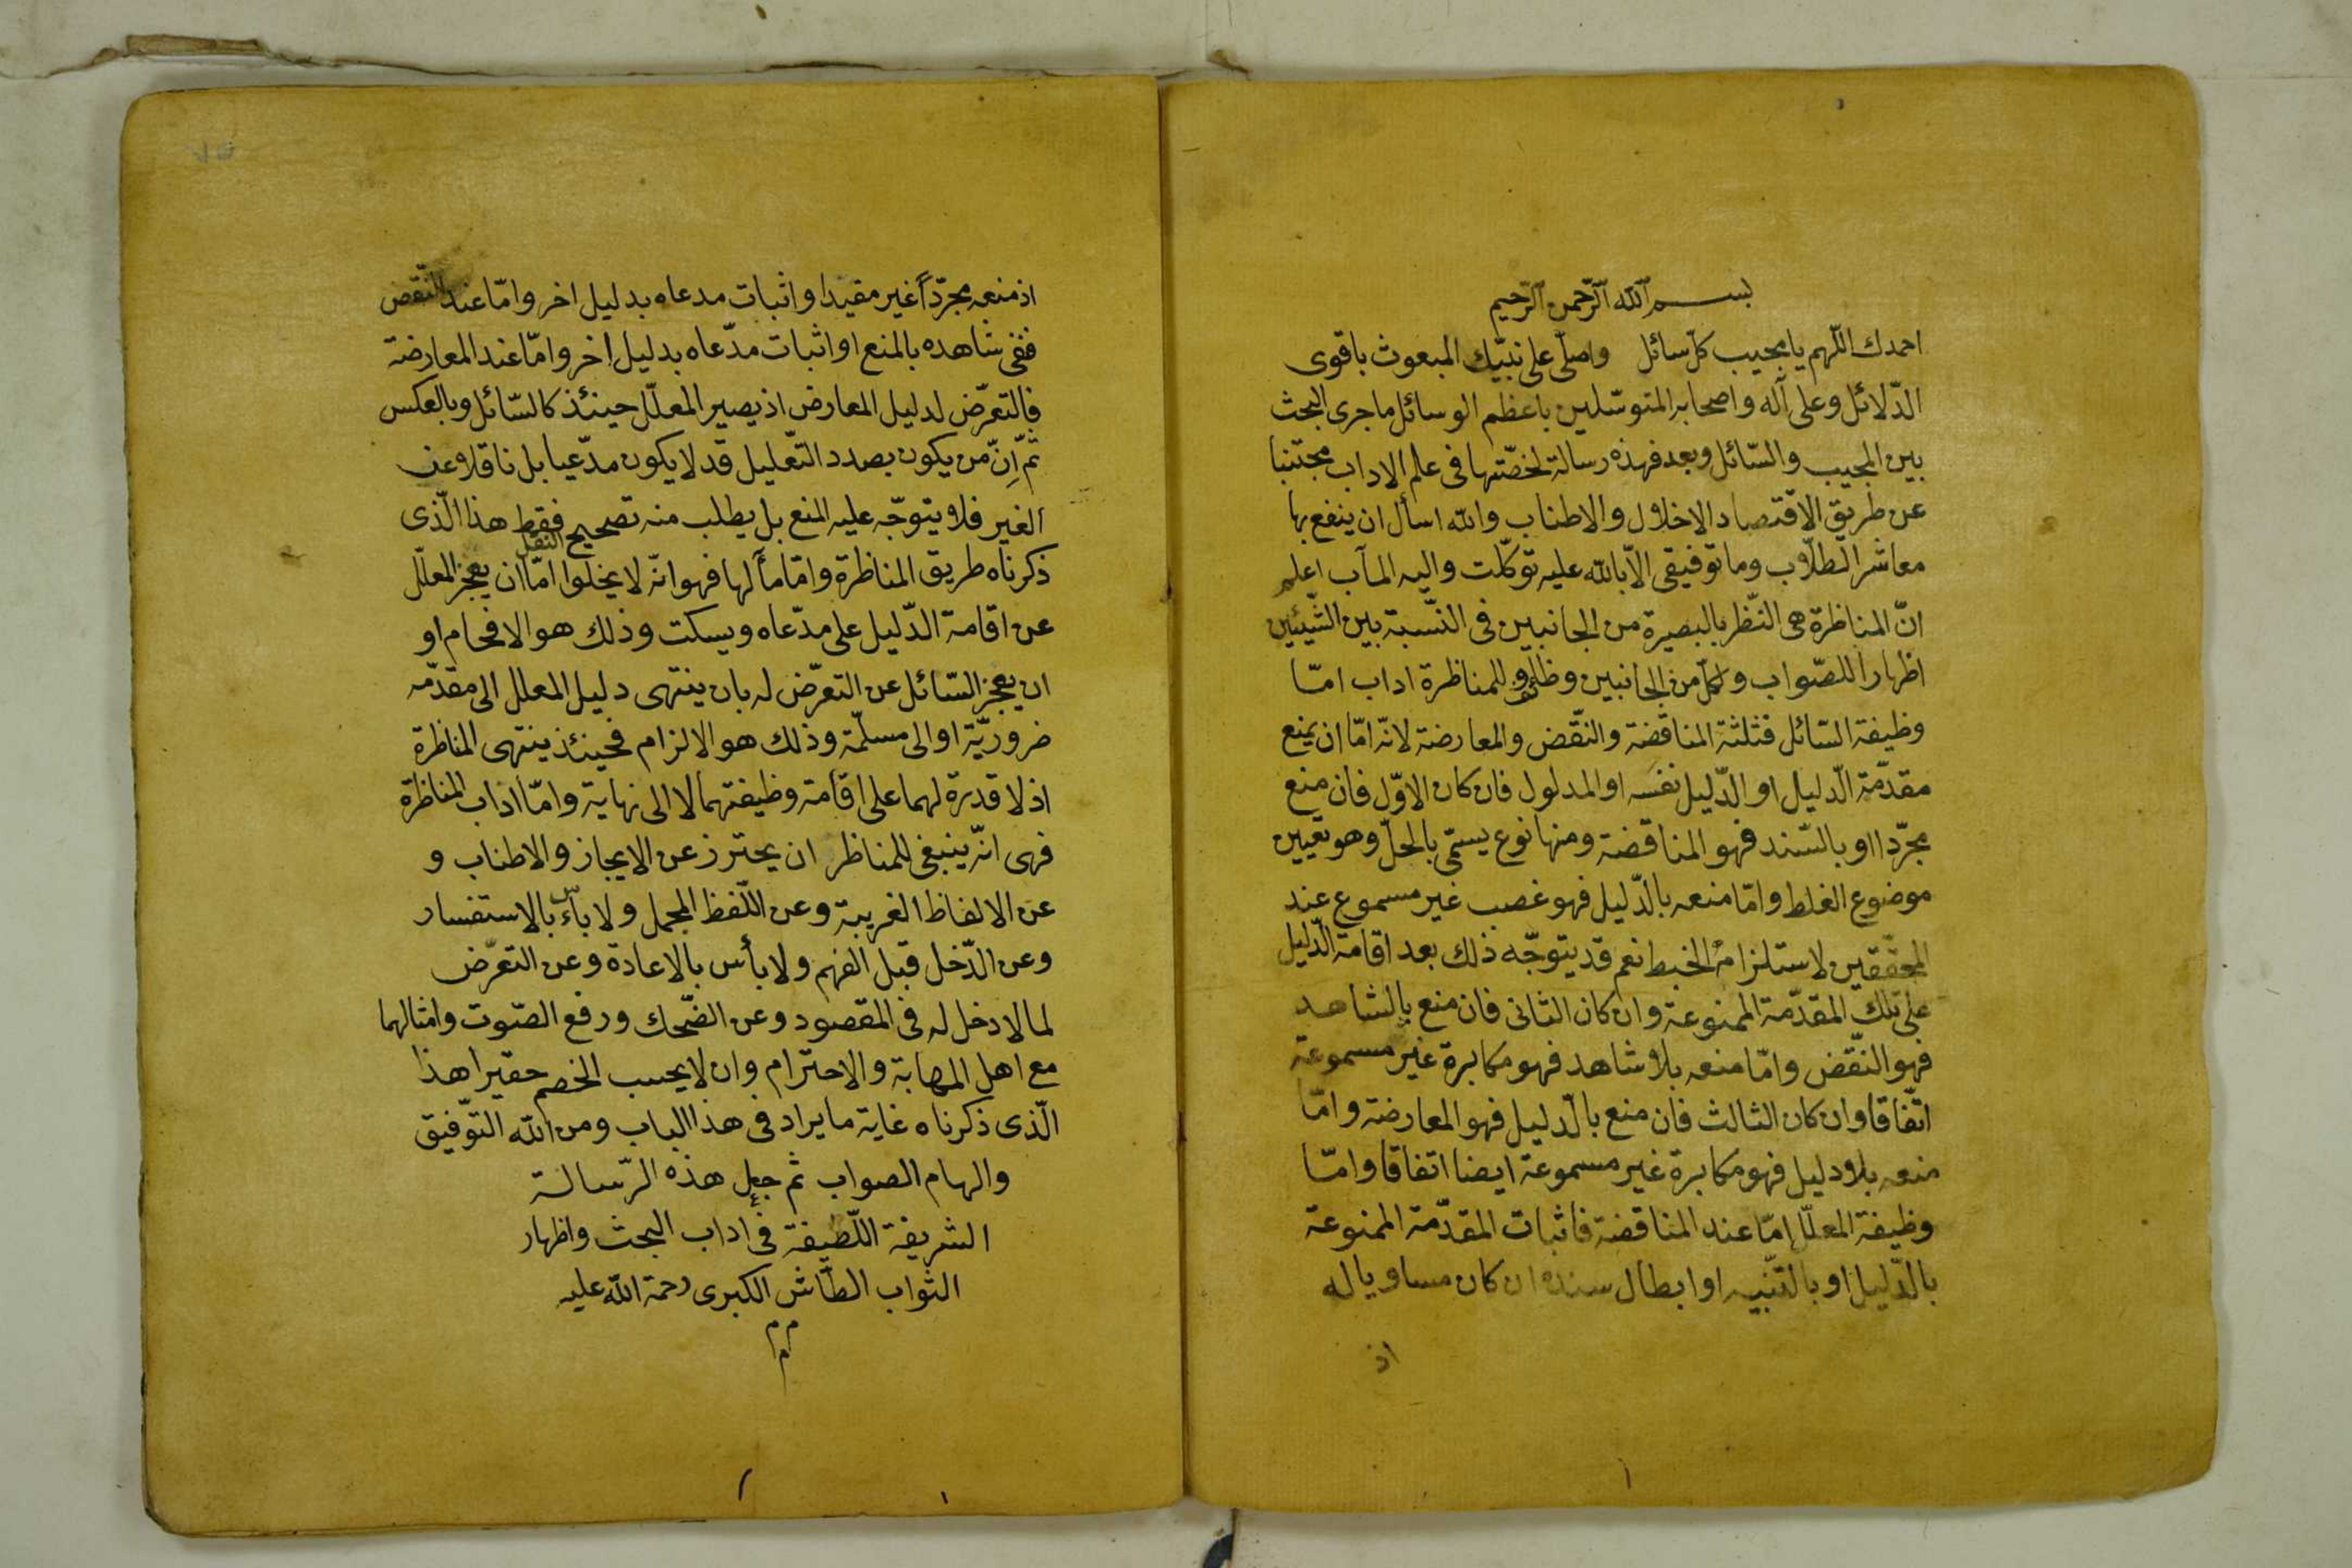 بسم الله الرّحمن الرّحيم
احمدك اللّهم يا مجيب كلّ سائل واصلّى على نبيّك المبعوث باقوى
الدّلائل وعلى آله واصحابه المتوسّلين باعظم الوسائل ما جرى البحث
بين المجيب والسّائل وبعد فهذه رسالة لخصّتها فى علم الاداب مجتنبا
عن طريق الاقتصاد الاخلال والاطناب والله اسأل ان ينفع بها
معاشر الطلّاب وما توفيقى الّا بالله عليه توكّلت واليه المآب اعلم
انّ المناظرة هى النّظر بالبصيرة من الجانبين فى النّسبة بين الشّيئين
اظهارا للصّواب ولكلّ من الجانبين وظائف وللمناظرة اداب امّا
وظيفة السّائل فثلثة المناقضة والنّقض والمعارضة لانّه امّا ان يمنع
مقدّمة الّدليل او الدّليل نفسَه او المدلول فان كان الاوّل فان منع
مجرّدا او بالسّند فهو المناقضة ومنها نوع يسمّى بالحلّ وهو تعيين
موضوع الغلط وامّا منعه بالدّليل فهو غصب غير مسموع عند
المحقّقين لاستلزامه الخبط نعم قد يتوجّه ذلك بعد اقامة الدّليل
على تلك المقدّمة الممنوعة وان كان الثانى فان منع بالشاهد
فهو النّقض وامّا منعه بلا شاهد فهو مكابرة غير مسموعة
اتّفاقا وان كان الثالث فان منع بالدّليل فهو المعارضة وامّا
منعه بلا دليل فهو مكابرة غير مسموعة ايضا اتفاقا وامّا
وظيفة المعلّل امّا عند المناقضة فاثبات المقدّمة الممنوعة
بالدّليل او بالتّنبيه او ابطال سنده ان كان مساويا له
اذ
اذ منعه مجرّداً غير مفيد او اثبات مدعاه بدليل اخر وامّا عند النّقض
ففى شاهده بالمنع او اثبات مدّعاه بدليل اخر وامّا عند المعارضة
فالتعرّض لدليل المعارض اذ يصير المعلّل حينئذ كالسّائل وبالعكس
ثمّ اِنّ من يكون بصدد التّعليل قد لا يكون مدّعيا بل ناقلا عن
الغير فلا يتوجّه عليه المنع بل يطلب منه تصحيح النّقل فقط هذا الّذى
ذكرناه طريق المناظرة وامّا مآلها فهو انّه لا يخلوا امّا ان يعجز المعلّل
عن اقامة الدّليل على مدّعاه ويسكت وذلك هو الافحام او
ان يعجز السّائل عن التعرّض له بان ينتهى دليل المعلل الى مقدّمه
ضروريّة او الى مسلّمة وذلك هو الالزام فحينئذ ينتهى المناظرة
اذ لا قدرة لهما على اقامة وظيفتهما لا الى نهاية وامّا اداب المناظرة
فهى انّه ينبغى للمناظر ان يحترز عن الايجاز والاطناب و
عن الالفاظ الغريبة وعن اللّفظ المجمل ولا بأس بالاستفسار
وعن الدّخل قبل الفهم ولا بأس بالاعادة وعن التعرّض
لما لا دخل له فى المقصود وعن الضّحك ورفع الصّوت وامثالهما
مع اهل المهابة والاحترام وان لا يحسب الخصم حقيرا هذا
الّذى ذكرناه غاية ما يراد فى هذا الباب ومن الله التّوفيق
والهام الصواب ثم جعل هذه الرّسالة
الشريفة اللّطيفة فى اداب البحث واظهار
الثواب الطّاش الكبرى رحمة الله عليه
م م
م